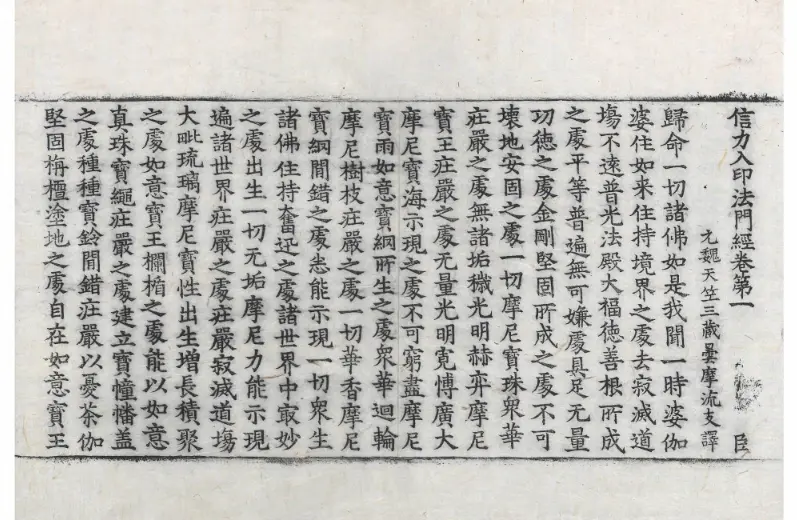 信力入印法門經卷第一 臣
元魏天竺三藏曇摩流支譯
歸命一切諸佛如是我聞一時婆伽
婆住如来住持境界之處去寂滅道
場不遠普光法殿大福徳善根所成
之處平等普遍無可嫌處具足无量
功徳之處金剛堅固所成之處不可
壞地安固之處一切摩尼寶珠衆華
莊嚴之處無諸垢穢光明赫弈摩尼
寶王莊嚴之處无量光明寛博廣大
摩尼寶海示現之處不可窮盡摩尼
寶雨如意寶網所生之處衆華迴輪
摩尼樹枝莊嚴之處一切華香摩尼
寶網間錯之處悉能示現一切衆生
諸佛住持奮迅之處諸世界中㝡妙
之處出生一切无垢摩尼力能示現
遍諸世界莊嚴之處莊嚴寂滅道場
大毗琉璃摩尼寶性出生增長積聚
之處如意寶王欄楯之處能以如意
真珠寶繩莊嚴之處建立寶幢幡盖
之處種種寶鈴間錯莊嚴以憂茶伽
堅固栴檀塗地之處自在如意寶王